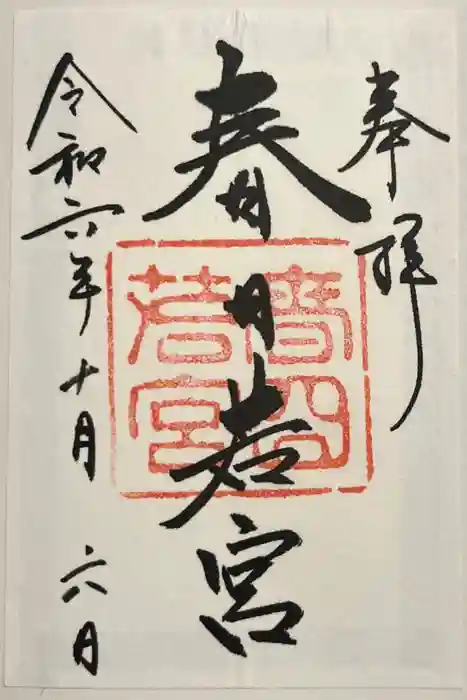 奉拝
春日若宮
春日
若宮
令和六年十月 六日